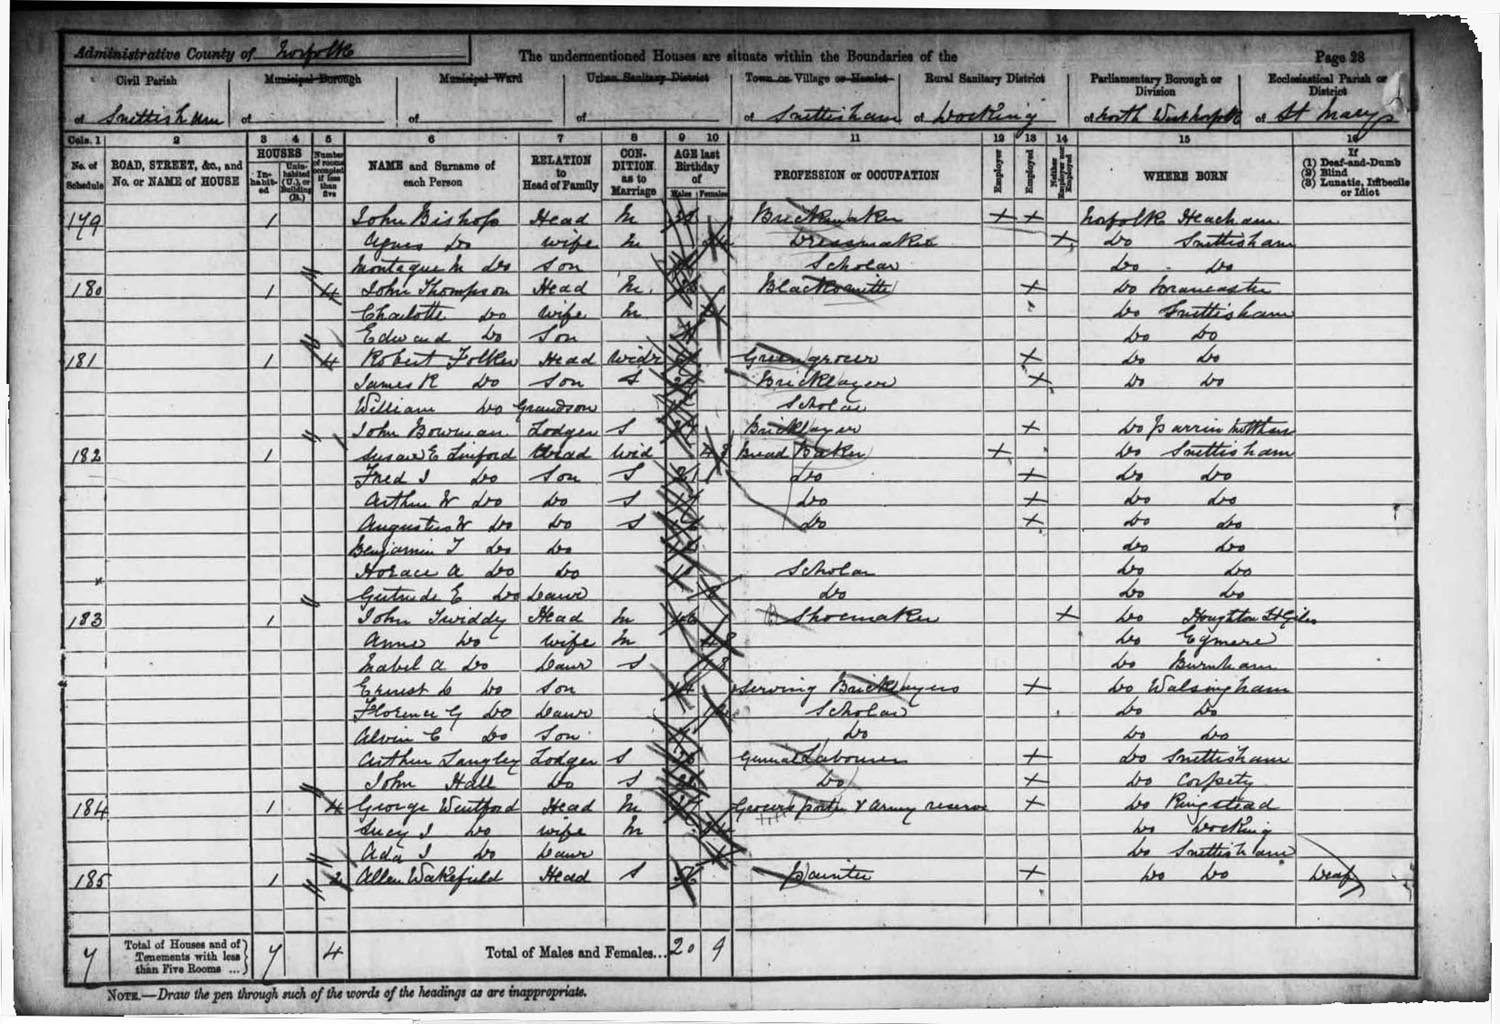 Administrative County of Norfolk
The undermentioned Houses are situate within the Boundaries of the
Page 28
Civil Parish Municipal Borough Municipal Ward Urban Sanitary District Town or Village or Hamlet Rural Sanitary District Parliamentary Borough or Division Ecclesiastical Parish or District
of Snettisham of of of of Snettisham of Docking of North West Norfolk of St Mary's
Cols. 1 2 3 4 5 6 7 8 9 10 11 12 13 14 15 16
No. of Schedule ROAD, STREET, &c., and No. or NAME of HOUSE HOUSES In-habit-ed Unin-habited (U.), or Building (B.) Number of rooms occupied if less than five NAME and Surname of each Person RELATION to Head of Family CON-DITION as to Marriage AGE last Birthday of Males Females PROFESSION or OCCUPATION Employer Employed Neither Employer nor Employed WHERE BORN If (1) Deaf-and-Dumb (2) Blind (3) Lunatic, Imbecile or Idiot
179 1 John Bishop Head M Brickmaker × × Norfolk Heacham
Agnes Do wife M Dressmaker × Do Snettisham
Montague M Do Son Scholar Do Do
180 1 4 John Thompson Head M Blacksmith × Do Brancaster
Charlotte Do wife M Do Snettisham
Edward Do Son Do Do
181 1 4 Robert Folker Head Widr Greengrocer × Do Do
James R Do Son S Bricklayer × Do Do
William Do Grandson Scholar Do Do
John Bowman Lodger S Bricklayer × Do
182 1 Susan E Linford Head Wid 48 Bread Baker × Do Snettisham
Fred J Do Son S 21 Do × Do Do
Arthur W Do Do S Do × Do Do
Augustus W Do Do S Do × Do Do
Benjamin T Do Do Do Do
Horace A Do Do Scholar Do Do
Gertrude E Do Daur Do Do Do
183 1 John Twiddy Head M 46 Shoemaker × Do Houghton St Giles
Anne Do wife M 48 Do Egmere
Mabel A Do Daur S 18 Do Burnham
Ernest Do Son 14 Serving Bricklayers × Do Walsingham
Florence G Do Daur Scholar Do Do
Alvin C Do Son Do Do Do
Arthur Langley Lodger S General Labourer × Do Snettisham
John Hall Do S Do × Do Corpsty
184 1 4 George Wentford Head M Grocers porter & Army reserve × Do Ringstead
Lucy J Do wife M Do Docking
Ada J Do Daur Do Snettisham
185 1 2 Allen Wakefield Head S Painter × Do Do Deaf
7 Total of Houses and of Tenements with less than Five Rooms ... 7 4 Total of Males and Females... 20 9
NOTE.—Draw the pen through such of the words of the headings as are inappropriate.